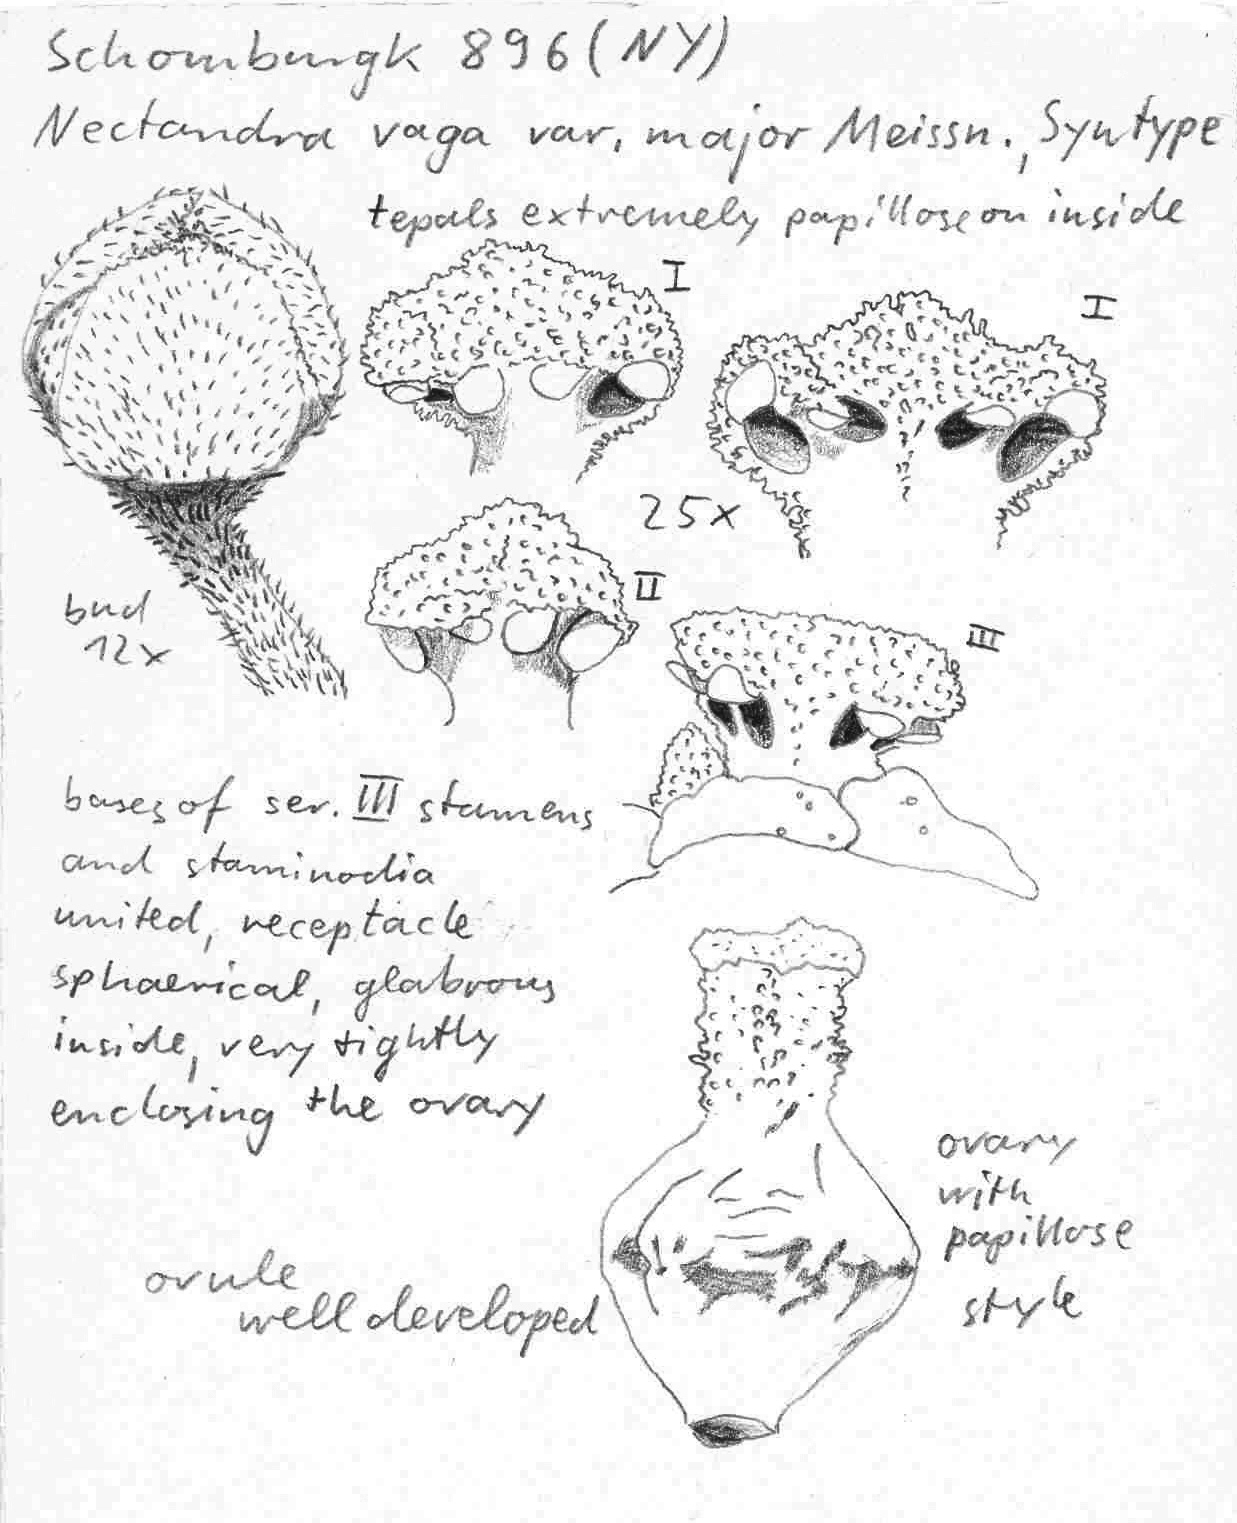 Schomburgk 896 (NY)
Nectandra vaga var. major Meissn., Syntype
tepals extremely papillose on inside
I
I
25x
II
bud
12x
III
bases of ser. III stamens
and staminodia
united, receptacle
sphaerical, glabrous
inside, very tightly
enclosing the ovary
ovary
with
papillose
style
ovule
well developed